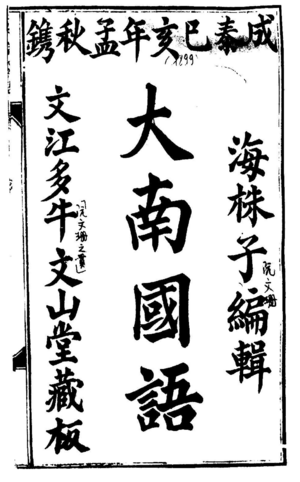 成泰巳亥年孟秋鐫
(1899)
海株子編輯
阮文珊
大南國語
文江多牛文山堂藏板
阮文珊之